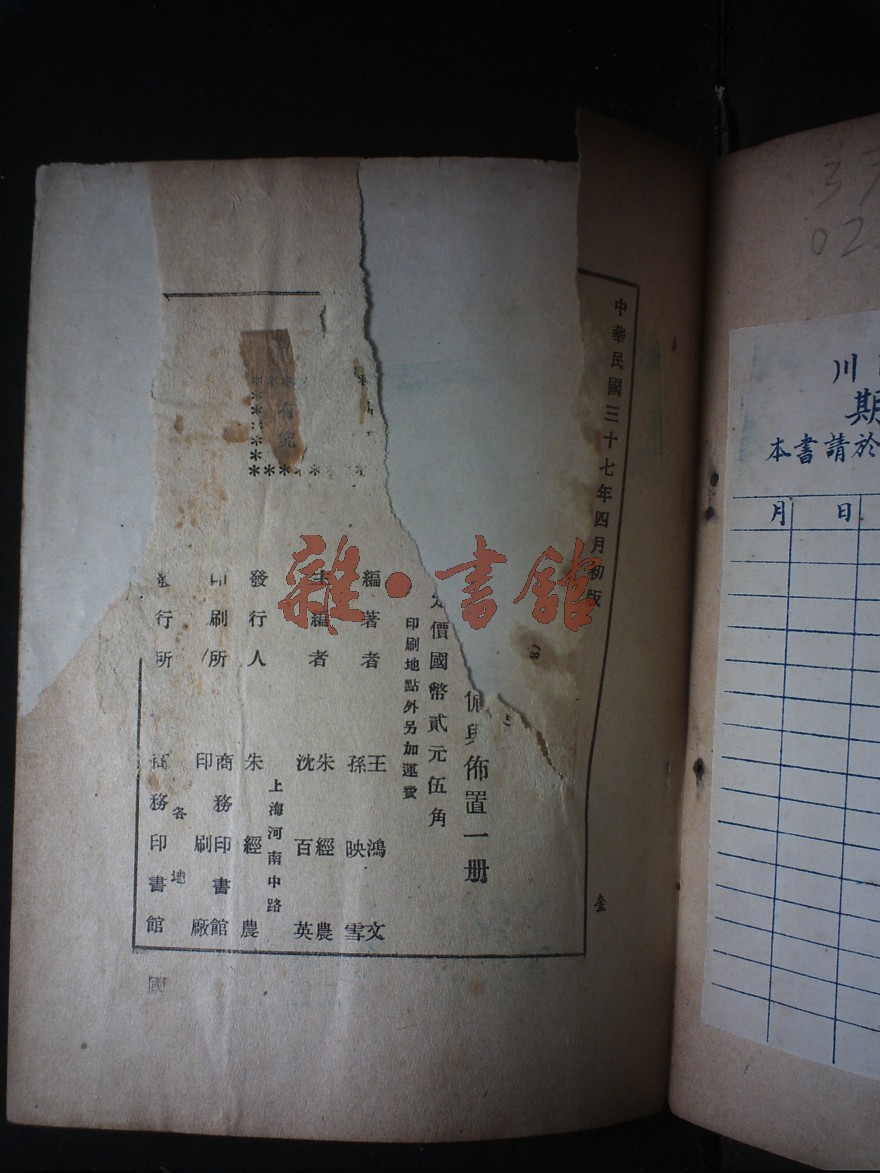 中華民國三十七年四月初版
佈置一册
定價國幣貳元伍角
印刷地點外另加運費
編著者 王鴻文 孫映雪
主編者 朱經農 沈百英
上海河南中路
發行人 朱經農
印刷所 商務印書館印刷廠
各地
發行所 商務印書館
國
雜·書館
川
期
本書請於
月 日